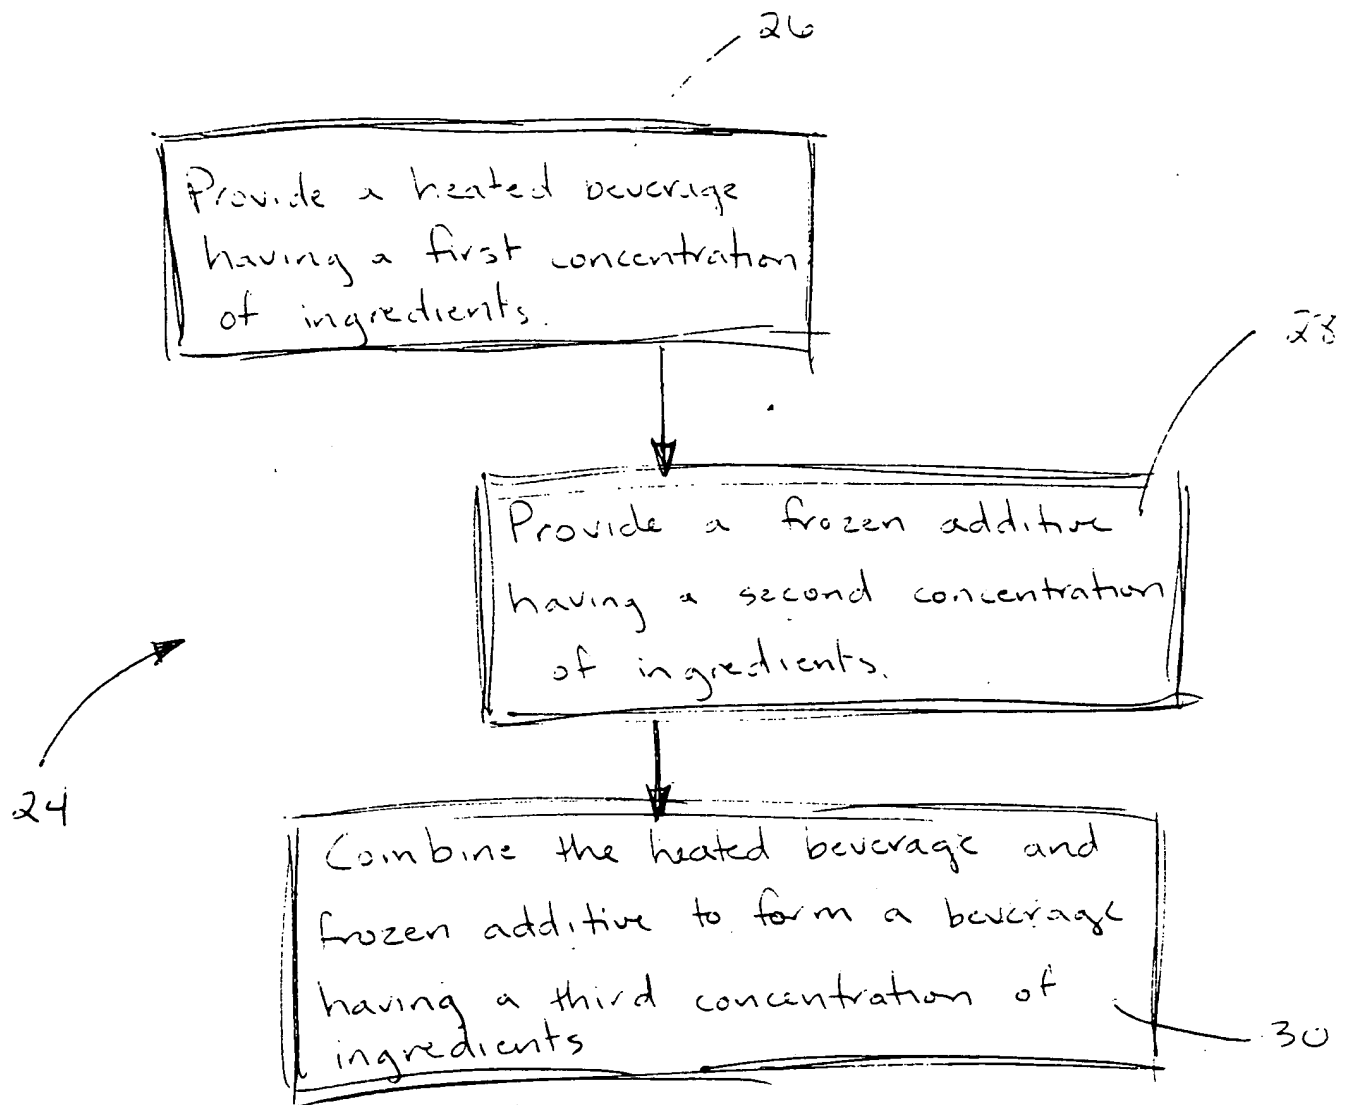 26
Provide a heated beverage
having a first concentration
of ingredients.
28
Provide a frozen additive
having a second concentration
of ingredients.
24
Combine the heated beverage and
frozen additive to form a beverage
having a third concentration of
ingredients
30